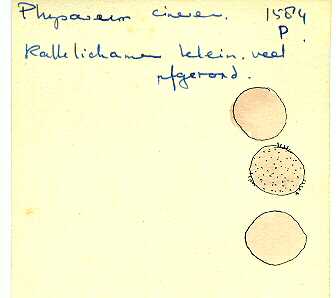 Physarum cinereu. 1584
P
Kalklichamen klein, veel
afgerond.